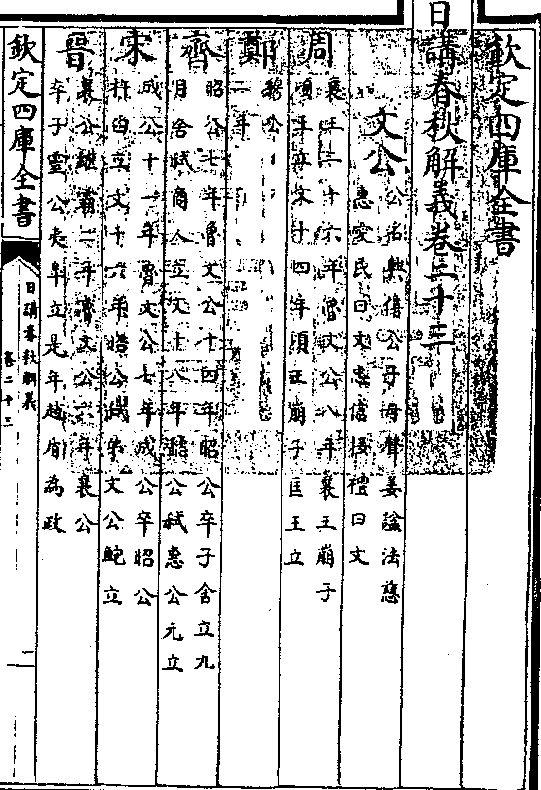 欽定四庫全書
日講春秋解義卷二十三
文公
公名興僖公子母聲姜諡法慈
惠愛民曰文忠信接禮曰文
周
襄王二十六年魯文公八年襄王崩子
頃王立文十四年頃王崩子匡王立
鄭
穆公
二年
齊
昭公七年魯文公十四年昭公卒子舍立九
月舍弒商人立文十八年弒懿公元立
宋
成公十一年魯文公七年成公卒昭公
杵臼立文十六年昭公弒弟文公鮑立
晉
襄公繼霸二年魯文公六年襄公
卒子靈公夷皋立是年趙盾為政
欽定四庫全書
日講春秋解義
卷二十三
一